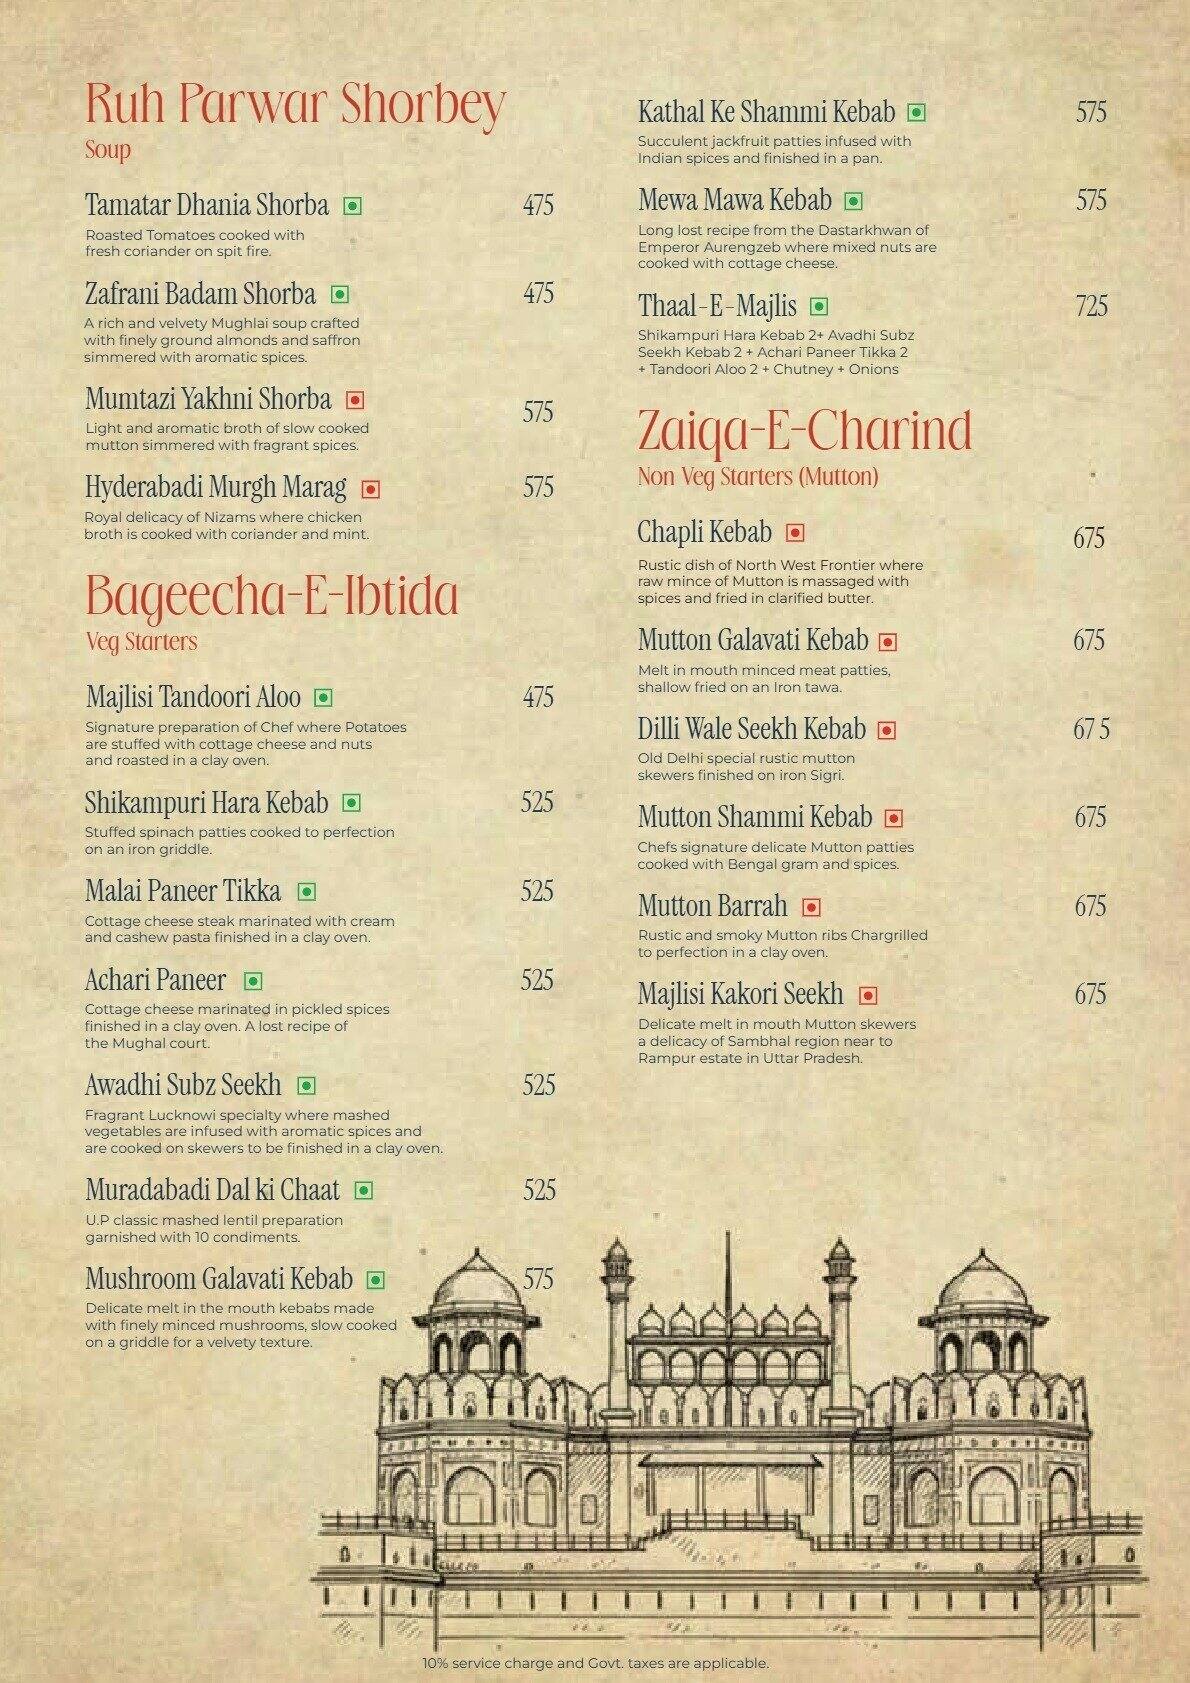 Ruh Parwar Shorbey
Soup
Tamatar Dhania Shorba 475
Roasted Tomatoes cooked with
fresh coriander on spit fire.
Zafrani Badam Shorba 475
A rich and velvety Mughlai soup crafted
with finely ground almonds and saffron
simmered with aromatic spices.
Mumtazi Yakhni Shorba 575
Light and aromatic broth of slow cooked
mutton simmered with fragrant spices.
Hyderabadi Murgh Marag 575
Royal delicacy of Nizams where chicken
broth is cooked with coriander and mint.
Bageecha-E-Ibtida
Veg Starters
Majlisi Tandoori Aloo 475
Signature preparation of Chef where Potatoes
are stuffed with cottage cheese and nuts
and roasted in a clay oven.
Shikampuri Hara Kebab 525
Stuffed spinach patties cooked to perfection
on an iron griddle.
Malai Paneer Tikka 525
Cottage cheese steak marinated with cream
and cashew pasta finished in a clay oven.
Achari Paneer 525
Cottage cheese marinated in pickled spices
finished in a clay oven. A lost recipe of
the Mughal court.
Awadhi Subz Seekh 525
Fragrant Lucknowi specialty where mashed
vegetables are infused with aromatic spices and
are cooked on skewers to be finished in a clay oven.
Muradabadi Dal ki Chaat 525
U.P classic mashed lentil preparation
garnished with 10 condiments.
Mushroom Galavati Kebab 575
Delicate melt in the mouth kebabs made
with finely minced mushrooms, slow cooked
on a griddle for a velvety texture.
Kathal Ke Shammi Kebab 575
Succulent jackfruit patties infused with
Indian spices and finished in a pan.
Mewa Mawa Kebab 575
Long lost recipe from the Dastarkhwan of
Emperor Aurengzeb where mixed nuts are
cooked with cottage cheese.
Thaal-E-Majlis 725
Shikampuri Hara Kebab 2+ Avadhi Subz
Seekh Kebab 2 + Achari Paneer Tikka 2
+ Tandoori Aloo 2 + Chutney + Onions
Zaiqa-E-Charind
Non Veg Starters (Mutton)
Chapli Kebab 675
Rustic dish of North West Frontier where
raw mince of Mutton is massaged with
spices and fried in clarified butter.
Mutton Galavati Kebab 675
Melt in mouth minced meat patties,
shallow fried on an Iron tawa.
Dilli Wale Seekh Kebab 67 5
Old Delhi special rustic mutton
skewers finished on iron Sigri.
Mutton Shammi Kebab 675
Chefs signature delicate Mutton patties
cooked with Bengal gram and spices.
Mutton Barrah 675
Rustic and smoky Mutton ribs Chargrilled
to perfection in a clay oven.
Majlisi Kakori Seekh 675
Delicate melt in mouth Mutton skewers
a delicacy of Sambhal region near to
Rampur estate in Uttar Pradesh.
10% service charge and Govt. taxes are applicable.